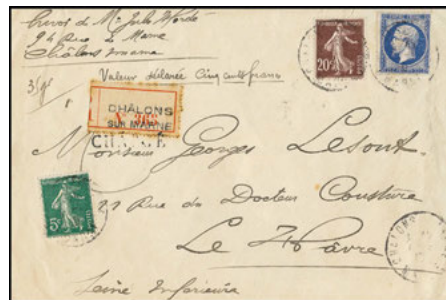 Envoi de Mr Jules Horde
94 Rue de Marne
Châlons marne
Valeur déclarée Cinq cents francs
20c
CHÂLONS
SUR MARNE
N° 365
CHARGÉ
Monsieur Georges Lesont
5c
21 Rue du Docteur Cousture
Le Hâvre
Seine Inférieure